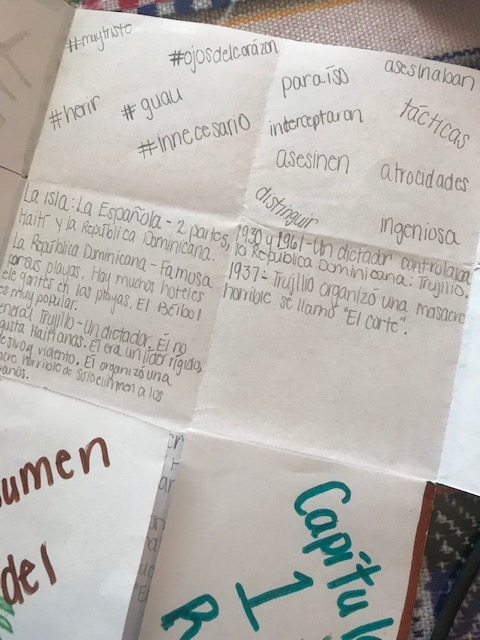 #muytriste
#ojosdelcorazón
#herir
#guau
#innecesario
paraíso
asesinaban
interceptaron
tácticas
asesinen
atrocidades
distinguir
ingeniosa
La isla: La Española - 2 partes,
Haití y la República Dominicana.
La República Dominicana - Famosa
por sus playas. Hay muchos hoteles
elegantes en las playas. El Béisbol
es muy popular.
General Trujillo - Un dictador. Él no
gusta Haitianas. Él era un líder rígido,
y violento. Él organizó una
horrible de a los
1930 y 1961 - Un dictador controlaba
la República Dominicana: Trujillo.
1937 - Trujillo organizó una masacre
horrible se llamó "El corte".
del
Capítulo
1
R